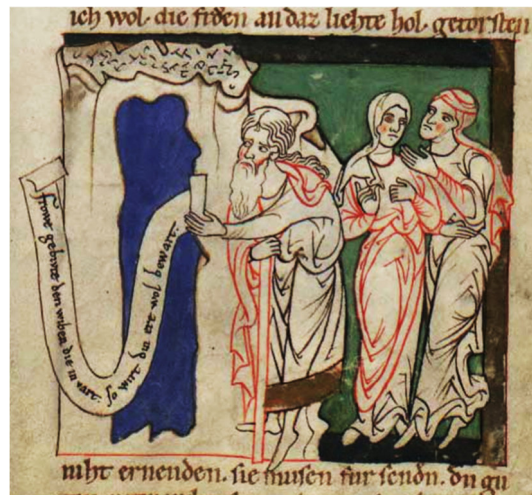 ich wol. die frden an daz liehte hol. getorsten
frowe gebivte den wiben die in vart.
so wirt din ere wol bewart.
niht ernenden. sie mͮsen fur sendn. dn gu